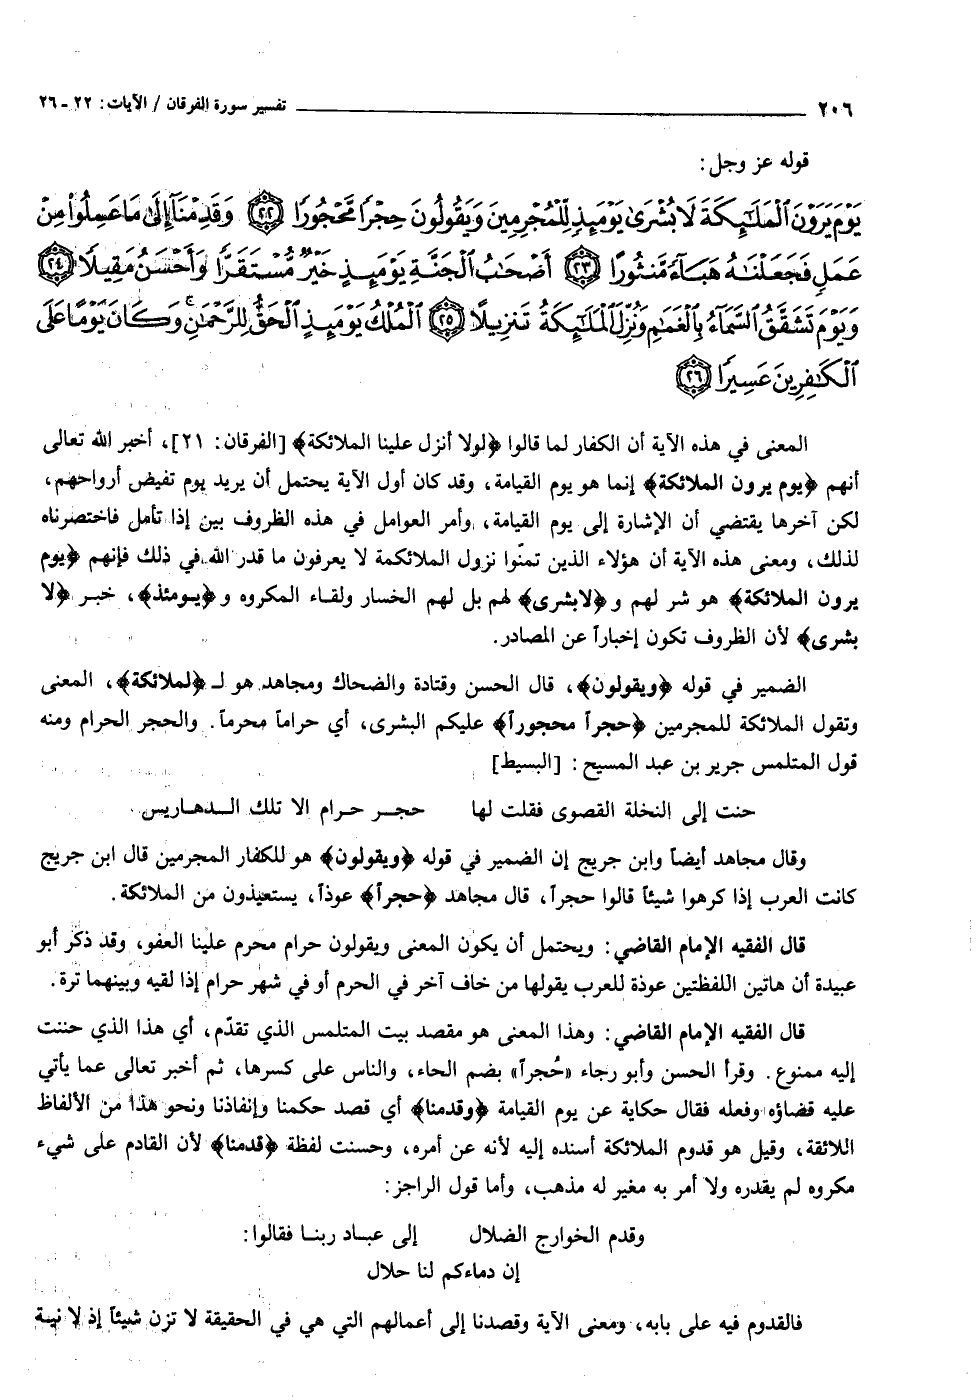 ٢٠٦ تفسير سورة الفرقان / الآيات: ٢٢ ـ ٢٦
قوله عز وجل:
يَوْمَ يَرَوْنَ الْمَلَائِكَةَ لَا بُشْرَىٰ يَوْمَئِذٍ لِّلْمُجْرِمِينَ وَيَقُولُونَ حِجْرًا مَّحْجُورًا ﴿٢٢﴾ وَقَدِمْنَا إِلَىٰ مَا عَمِلُوا مِنْ
عَمَلٍ فَجَعَلْنَاهُ هَبَاءً مَّنثُورًا ﴿٢٣﴾ أَصْحَابُ الْجَنَّةِ يَوْمَئِذٍ خَيْرٌ مُّسْتَقَرًّا وَأَحْسَنُ مَقِيلًا ﴿٢٤﴾
وَيَوْمَ تَشَقَّقُ السَّمَاءُ بِالْغَمَامِ وَنُزِّلَ الْمَلَائِكَةُ تَنزِيلًا ﴿٢٥﴾ الْمُلْكُ يَوْمَئِذٍ الْحَقُّ لِلرَّحْمَٰنِ وَكَانَ يَوْمًا عَلَى
الْكَافِرِينَ عَسِيرًا ﴿٢٦﴾
المعنى في هذه الآية أن الكفار لما قالوا ﴿لولا أنزل علينا الملائكة﴾ [الفرقان: ٢١]، أخبر الله تعالى
أنهم ﴿يوم يرون الملائكة﴾ إنما هو يوم القيامة، وقد كان أول الآية يحتمل أن يريد يوم تفيض أرواحهم،
لكن آخرها يقتضي أن الإشارة إلى يوم القيامة، وأمر العوامل في هذه الظروف بين إذا تأمل فاختصرناه
لذلك، ومعنى هذه الآية أن هؤلاء الذين تمنّوا نزول الملائكمة لا يعرفون ما قدر الله في ذلك فإنهم ﴿يوم
يرون الملائكة﴾ هو شر لهم و ﴿لابشرى﴾ لهم بل لهم الخسار ولقاء المكروه و ﴿يومئذ﴾، خبر ﴿لا
بشرى﴾ لأن الظروف تكون إخباراً عن المصادر.
الضمير في قوله ﴿ويقولون﴾، قال الحسن وقتادة والضحاك ومجاهد هو لـ ﴿لملائكة﴾، المعنى
وتقول الملائكة للمجرمين ﴿حجراً محجوراً﴾ عليكم البشرى، أي حراماً محرماً. والحجر الحرام ومنه
قول المتلمس جرير بن عبد المسيح: [البسيط]
حنت إلى النخلة القصوى فقلت لها حجر حرام الا تلك الدهاريس
وقال مجاهد أيضاً وابن جريج إن الضمير في قوله ﴿ويقولون﴾ هو للكفار المجرمين قال ابن جريج
كانت العرب إذا كرهوا شيئاً قالوا حجراً، قال مجاهد ﴿حجراً﴾ عوذاً، يستعيذون من الملائكة.
قال الفقيه الإمام القاضي: ويحتمل أن يكون المعنى ويقولون حرام محرم علينا العفو، وقد ذكر أبو
عبيدة أن هاتين اللفظتين عوذة للعرب يقولها من خاف آخر في الحرم أو في شهر حرام إذا لقيه وبينهما ترة.
قال الفقيه الإمام القاضي: وهذا المعنى هو مقصد بيت المتلمس الذي تقدّم، أي هذا الذي حننت
إليه ممنوع. وقرأ الحسن وأبو رجاء «حُجراً» بضم الحاء، والناس على كسرها، ثم أخبر تعالى عما يأتي
عليه قضاؤه وفعله فقال حكاية عن يوم القيامة ﴿وقدمنا﴾ أي قصد حكمنا وإنفاذنا ونحو هذا من الألفاظ
اللائقة، وقيل هو قدوم الملائكة أسنده إليه لأنه عن أمره، وحسنت لفظة ﴿قدمنا﴾ لأن القادم على شيء
مكروه لم يقدره ولا أمر به مغير له مذهب، وأما قول الراجز:
وقدم الخوارج الضلال إلى عباد ربنا فقالوا:
إن دماءكم لنا حلال
فالقدوم فيه على بابه، ومعنى الآية وقصدنا إلى أعمالهم التي هي في الحقيقة لا تزن شيئاً إذ لا نية